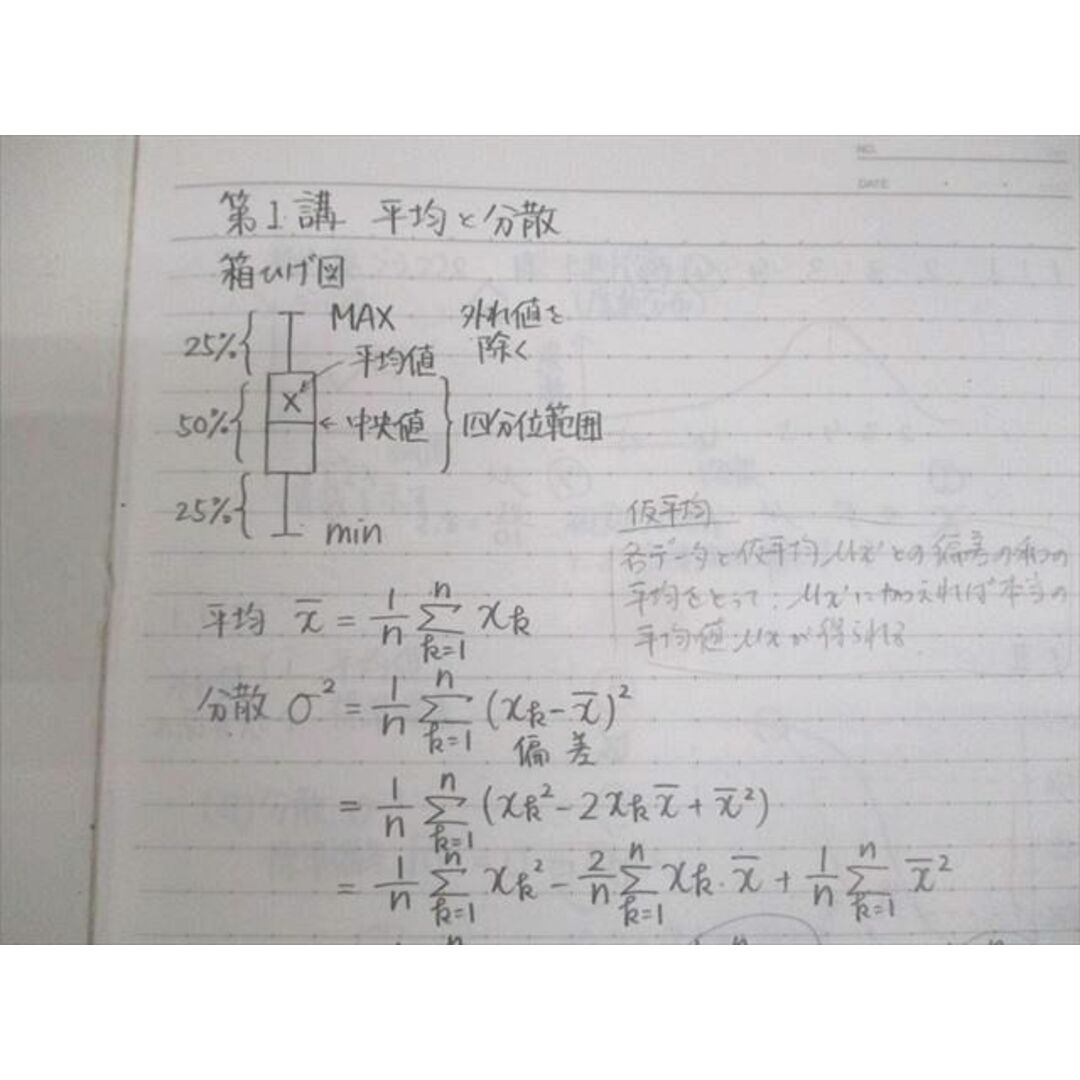 NO.
DATE
第1講 平均と分散
箱ひげ図
25% MAX 外れ値を
平均値 除く
50% x ← 中央値 四分位範囲
25% min
仮平均
各データと仮平均μx'との偏差の和の
平均をとって、μx'に加えれば本当の
平均値μxが得られる
平均 x̄ = 1/n Σ_{k=1}^{n} xk
分散 σ² = 1/n Σ_{k=1}^{n} (xk - x̄)²
偏差
= 1/n Σ_{k=1}^{n} (xk² - 2xk x̄ + x̄²)
= 1/n Σ_{k=1}^{n} xk² - 2/n Σ_{k=1}^{n} xk・x̄ + 1/n Σ_{k=1}^{n} x̄²